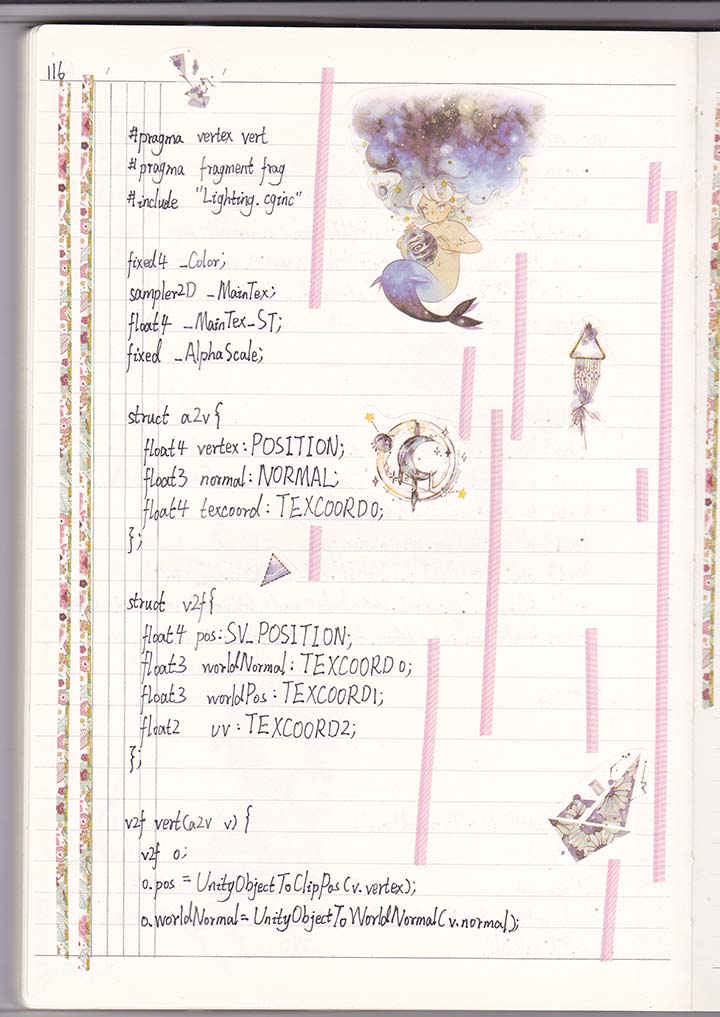 116
#pragma vertex vert
#pragma fragment frag
#include "Lighting.cginc"
fixed4 _Color;
sampler2D _MainTex;
float4 _MainTex_ST;
fixed _AlphaScale;
struct a2v{
float4 vertex:POSITION;
float3 normal:NORMAL;
float4 texcoord:TEXCOORD0;
};
struct v2f{
float4 pos:SV_POSITION;
float3 worldNormal:TEXCOORD0;
float3 worldPos:TEXCOORD1;
float2 uv:TEXCOORD2;
};
v2f vert(a2v v){
v2f o;
o.pos=UnityObjectToClipPos(v.vertex);
o.worldNormal=UnityObjectToWorldNormal(v.normal);